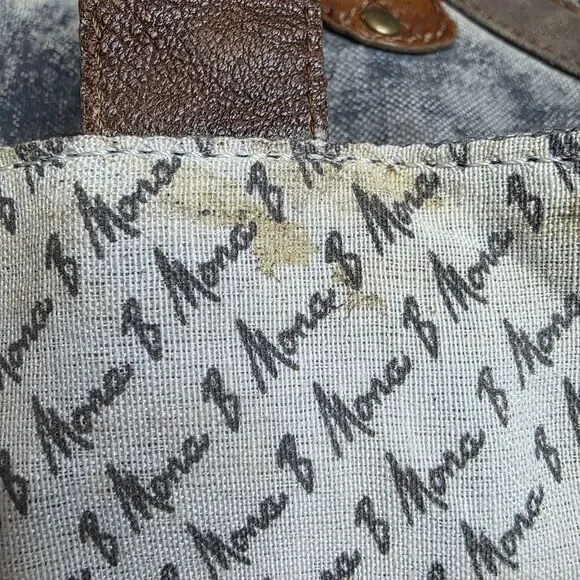 Mona B Mona B
B Mona B Mona B
Mona B Mona B Mona B
B Mona B Mona B Mona
Mona B Mona B Mona B
Mona B Mona B
Mona B